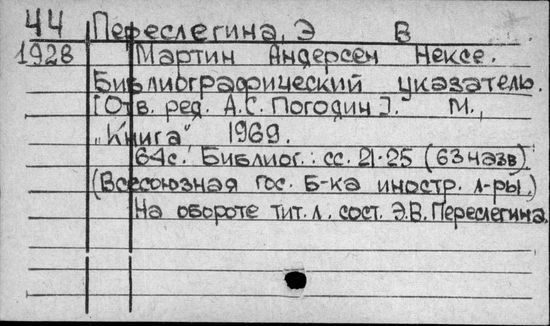 44 Переслегина, Э В
1928 Мартин Андерсен Нексе.
Библиографический указатель.
[Отв. ред. А.С. Погодин]. М.,
„Книга", 1969.
64с. Библиог.: сс. 21-25 (63 назв)
(Всесоюзная гос. Б-ка иностр. л-ры.)
На обороте тит. л. сост. Э.В. Переслегина.